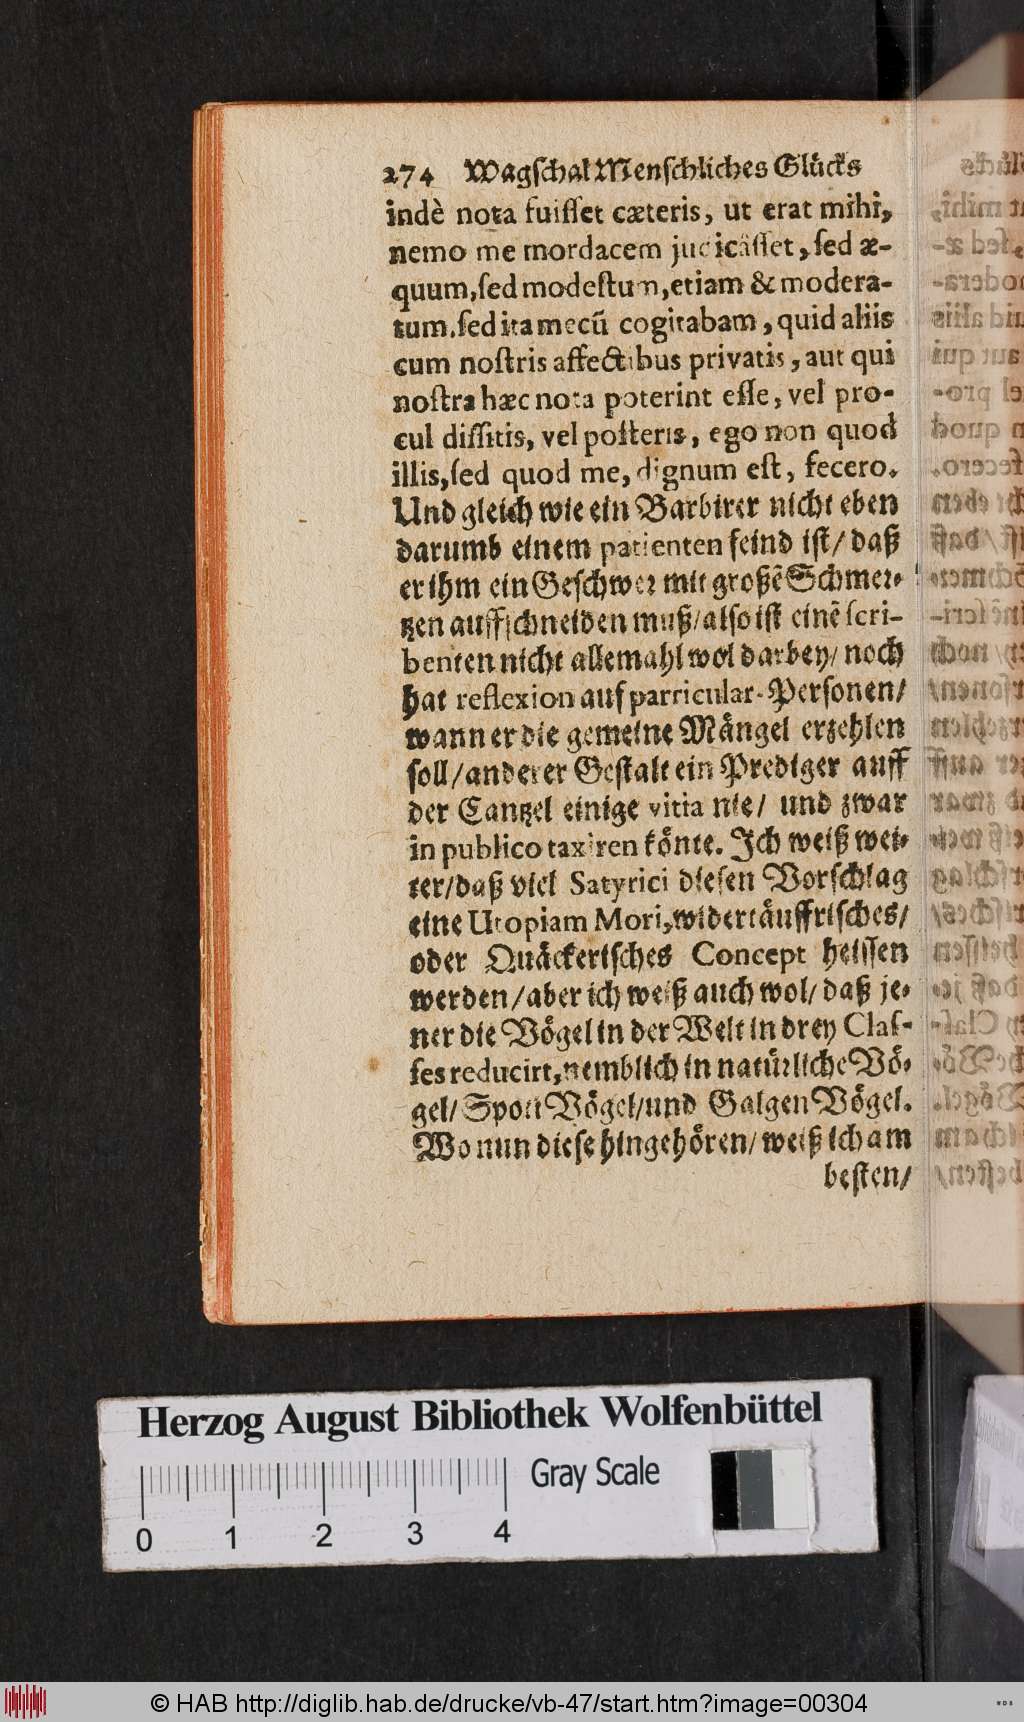 274 Wagſchal Menſchliches Glücks
indè nota fuiſſet cæteris, ut erat mihi,
nemo me mordacem judicâſſet, ſed æ-
quum, ſed modeſtum, etiam & modera-
tum. ſed ita mecū cogitabam, quid aliis
cum noſtris affectibus privatis, aut qui
noſtra hæc nota poterint eſſe, vel pro-
cul diſſitis, vel poſteris, ego non quod
illis, ſed quod me, dignum eſt, fecero.
Und gleich wie ein Barbirer nicht eben
darumb einem patienten feind iſt/ daß
er ihm ein Geſchwer mit großē Schmer-
tzen auffſchneiden muß/ alſo iſt einē ſcri-
benten nicht allemahl wol darbey/ noch
hat reflexion auf particular-Perſonen/
wann er die gemeine Mängel erzehlen
ſoll/ anderer Geſtalt ein Prediger auff
der Cantzel einige vitia nie/ und zwar
in publico taxiren könte. Ich weiß wei-
ter/ daß viel Satyrici dieſen Vorſchlag
eine Utopiam Mori, widertäuffriſches/
oder Quäckeriſches Concept heiſſen
werden/ aber ich weiß auch wol/ daß je-
ner die Vögel in der Welt in drey Claſ-
ſes reducirt, nemblich in natürliche Vö-
gel/ Spott Vögel/ und Galgen Vögel.
Wo nun dieſe hingehören/ weiß ich am
beſten/
Herzog August Bibliothek Wolfenbüttel
Gray Scale
0 1 2 3 4
© HAB http://diglib.hab.de/drucke/vb-47/start.htm?image=00304